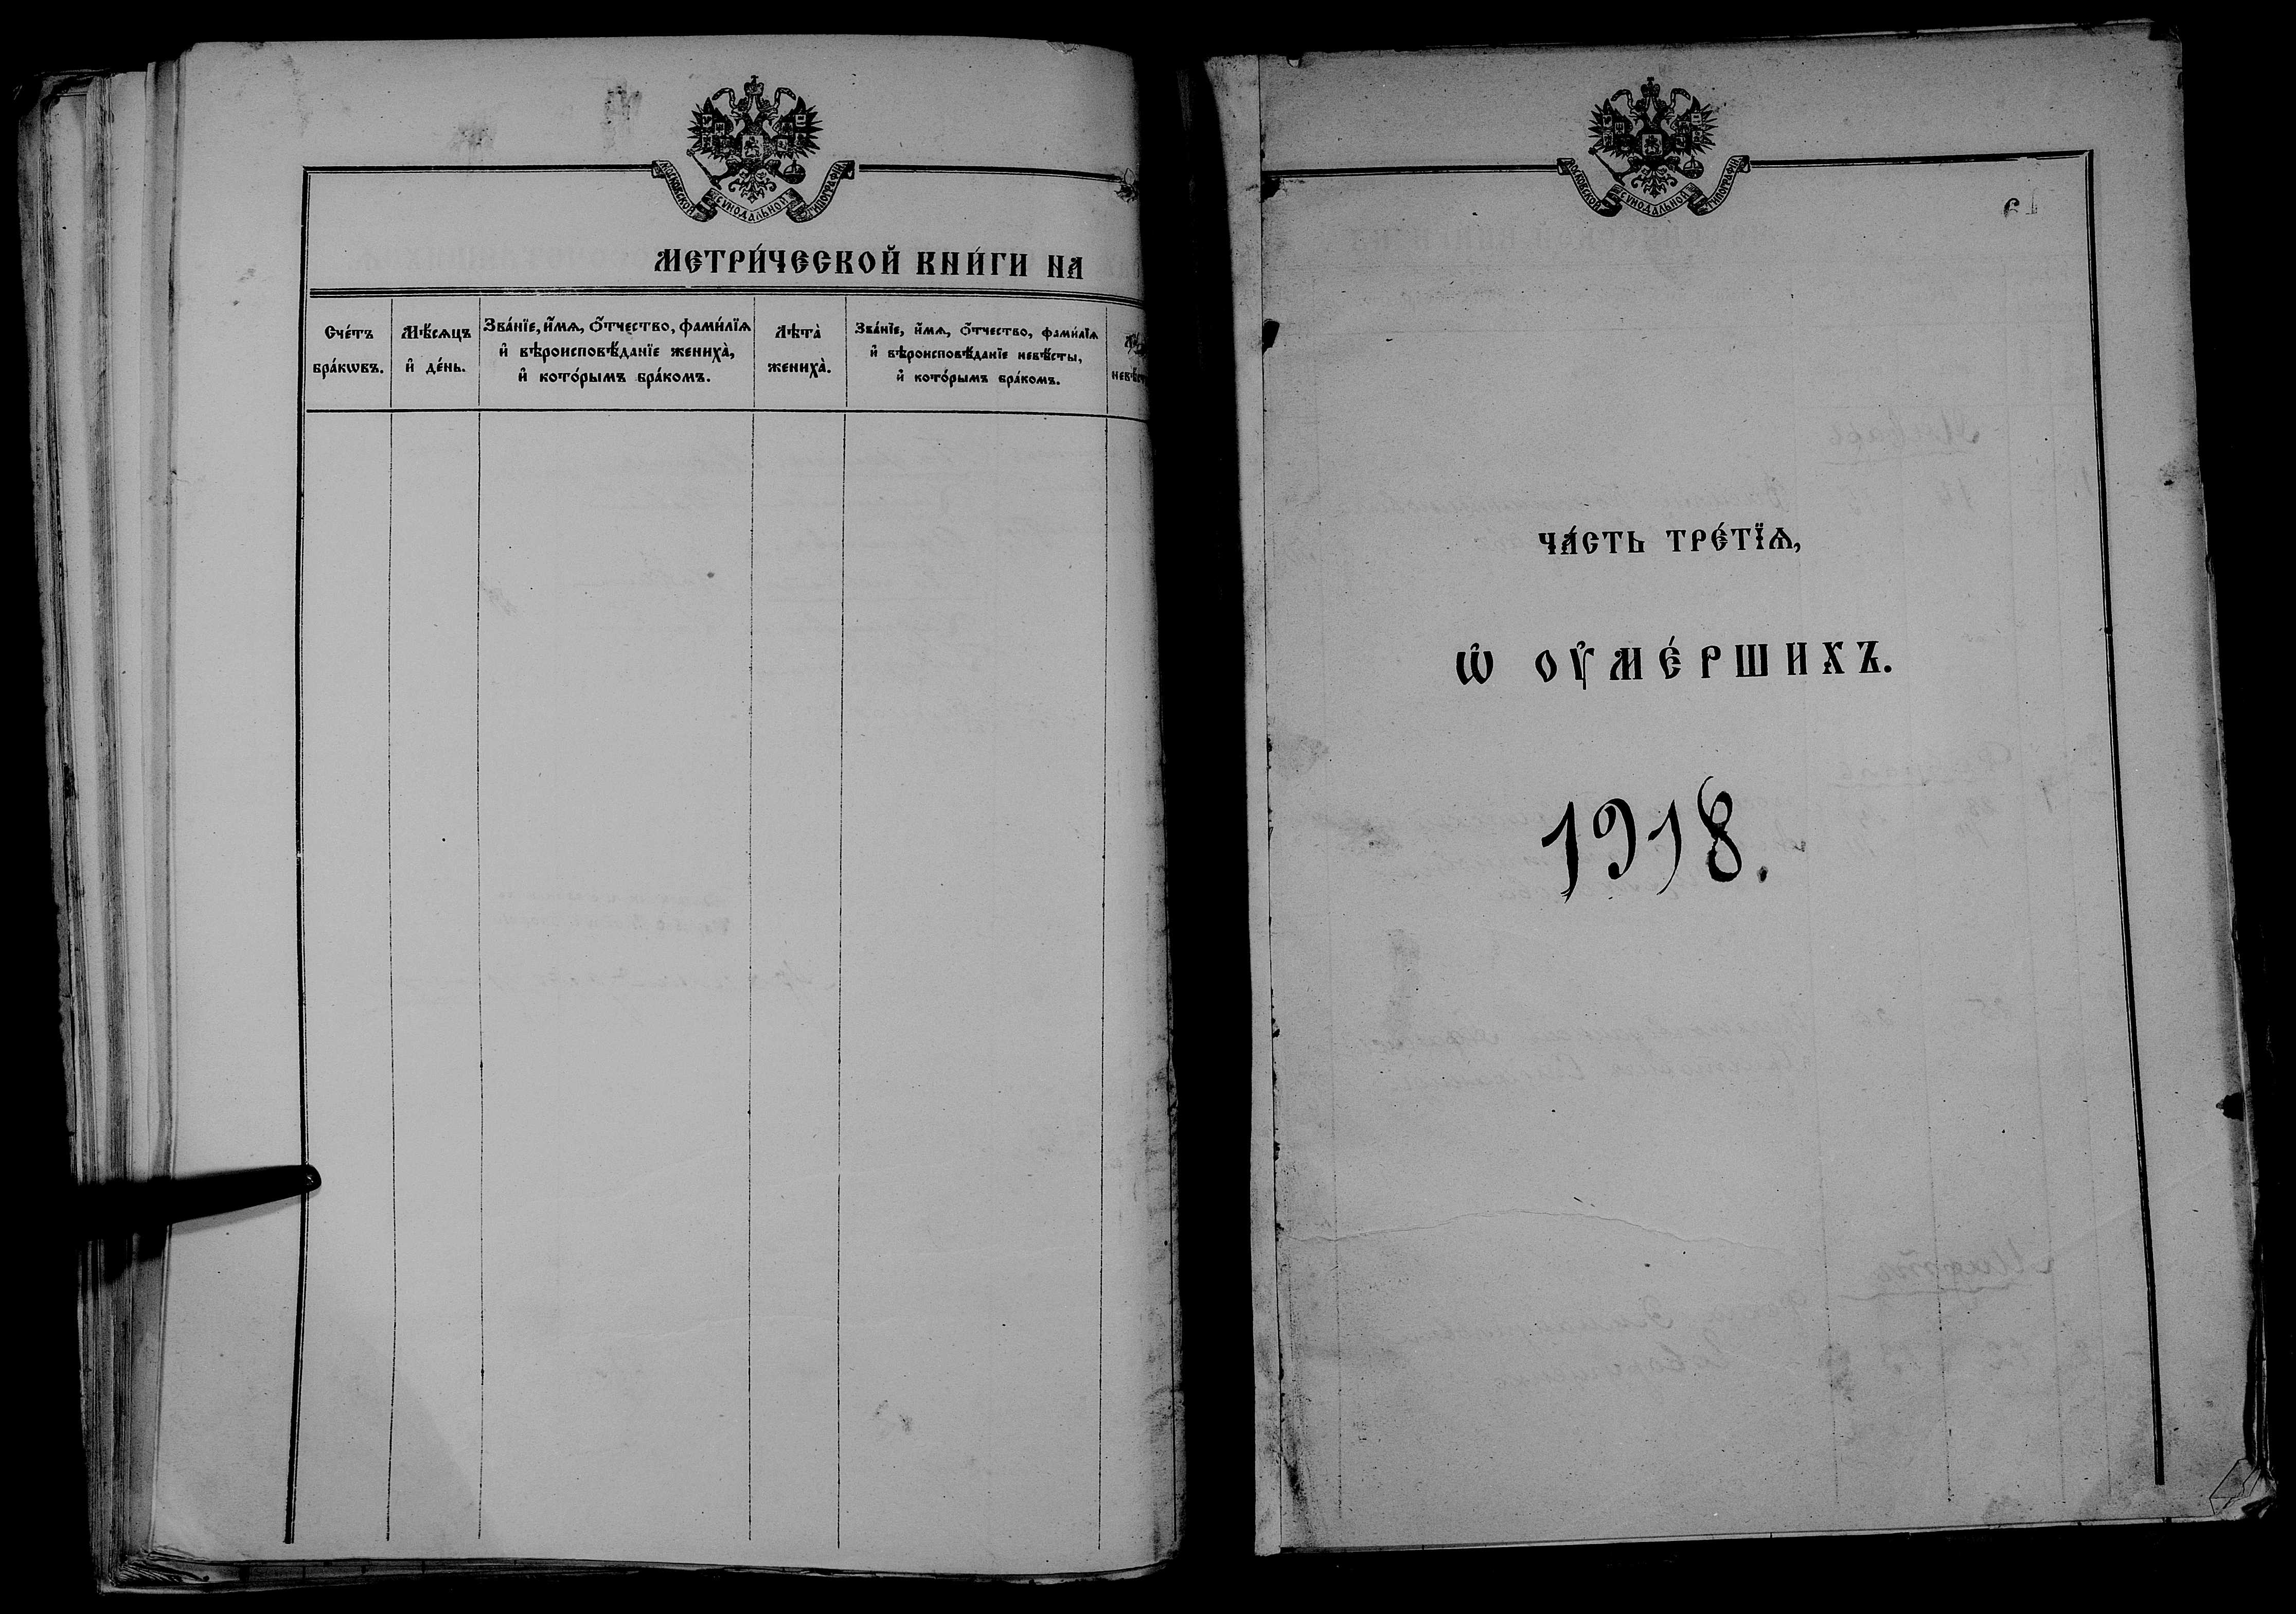 МОСКОВСКОЙ СѴНОДАЛЬНОЙ ТИПОГРАФІИ
МЕТРИ́ЧЕСКОЙ КНИ́ГИ НА
Сче́тъ
бра́кѡвъ.
Мѣ́сѧцъ
и҆ де́нь.
Зва́нїе, и҆́мѧ, ѻ҆́тчество, фами́лїѧ
и҆ вѣроисповѣ́данїе жениха̀,
и҆ кото́рымъ бра́комъ.
Лѣта̀
жениха̀.
Зва́нїе, и҆́мѧ, ѻ҆́тчество, фами́лїѧ
и҆ вѣроисповѣ́данїе невѣ́сты,
и҆ кото́рымъ бра́комъ.
МОСКОВСКОЙ СѴНОДАЛЬНОЙ ТИПОГРАФІИ
ЧА́СТЬ ТРЕ́ТЇѦ,
Ѡ҆ ОУ҆МЕ́РШИХЪ.
1918.